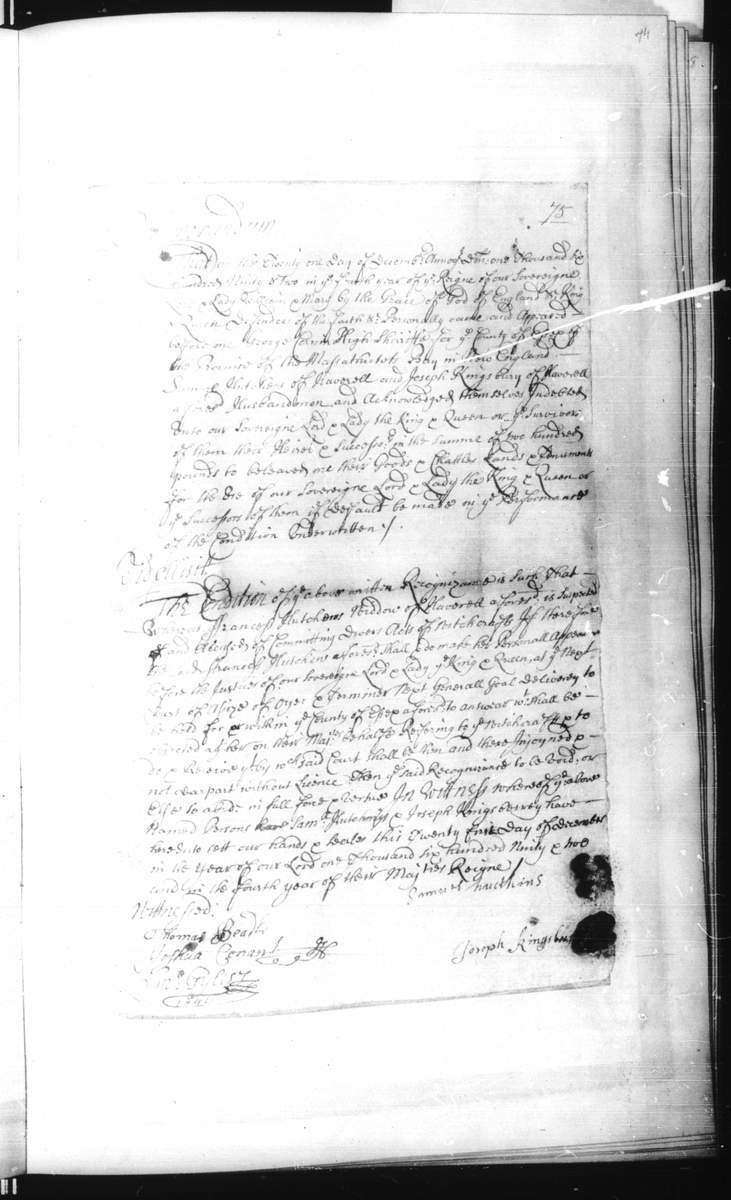 74
8
75
Memorandum
That on the Twenty one Day of Decembr Annoq Dom one Thousand Six
hundred Ninty & Two in ye fourth year of ye Raigne of our Sovereigne
Lord & Lady William & Mary by the Grace of God of England &c King
& Queen Defenders of the faith &c Personally came and Appeared
before me George Corwin High Sheriffe for ye County of Essex of
the Province of the Massathutets Bay in New England. —
Samuel Hutchens of Haverell and Joseph Kingsbury of Haverell
aforesd Husbandmen and Acknowledged themselves Indebted
unto our Sovereigne Lord & Lady the King & Queen or ye Survivor
of them their Heires & Successors in the summe of two hundred
pounds to be leaved one their Goods & Chattles Lands & Tenniments
for the Use of our Sovereigne Lord & Lady the King & Queen or
ye Successors of them if Default be made in ye Performance
of the Condition Underwritten /.
Videllisitt
The Condition of ye above written Recognizance is such That —
Whereas Frances Hutchens Widdow of Haverell aforesd is Suspected
of and Aledged of Committing Divers Acts of Witchcrafts If therefore
the sd Frances Hutchins aforesd Shall & do make her Personall Appearance
before the Justices of our sovereigne Lord & Lady ye King & Queen, at ye Next
Court of Assize of Oyer & Terminer Next Generall Goal delivery to
be held for or within ye County of Essex aforesd to answear wt shall be —
objected a her on their Majes behalfe Refering to ye Witchcraft & to
do & Receive yt by wch said Court shall be then and there Injoyned &
not departt without Licence Then ye said Recognizance to be Void, or
Else to abide in full force & vertue In Wittness whereof ye above
Named Persons Saml Hutchings & Joseph Kingsberrey have —
hereunto sett our hands & Seales this Twenty first Day of december
in the Year of our Lord one Thousand six hundred Ninty & two
and in the fourth year of their Majties Reigne /
Wittnessed:
Samuel huchins
Thomas Beadle
Joshua Conant
Joseph kingsbery